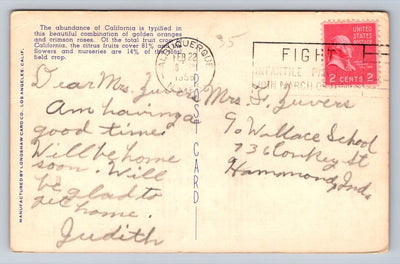 The abundance of California is typified in
this beautiful combination of golden oranges
and crimson roses. Of the total fruit crop
California, the citrus fruits cover 81% and
flowers and nurseries are 14% of the
field crop.
25
ALBUQUERQUE
FEB 22
FIGHT
INFANTILE
JOIN MARCH OF
UNITED STATES
POSTAGE
2 CENTS 2
POST CARD
MANUFACTURED BY LONGSHAW CARD CO., LOS ANGELES, CALIF.
Dear Mrs. Zuvers
Am having a
good time.
Will be home
soon. Will
be glad to
get home.
Judith
Mrs. Zuvers
℅ Wallace School
736 Conkey St
Hammond, Ind.